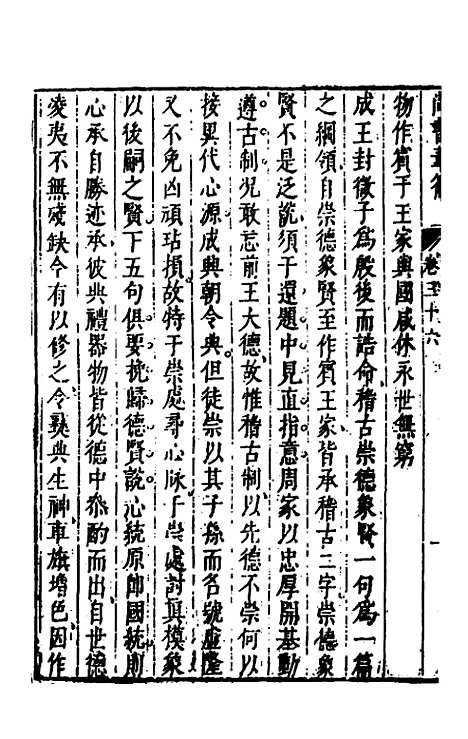 卷三十六
物作賓于王家與國咸休永世無窮
成王封微子爲殷後而誥命稽古崇德象賢一句爲一篇
之綱領自崇德象賢至作賓王家皆承稽古二字崇德象
賢不是泛說須于還題中見直指意周家以忠厚開基動
遵古制况敢忘前王大德故惟稽古制以先德不崇何以
接異代心源成典朝令典但徒崇以其子孫而名號虛隆
又不免凶頑玷損故特于崇處尋心脉于崇處討眞模象
以後嗣之賢下五句俱要挽歸德賢說心統原卽國統則
心承自勝迹承彼典禮器物皆從德中叅酌而出自世德
凌夷不無殘缺今有以修之令典生神車旗墻色因作